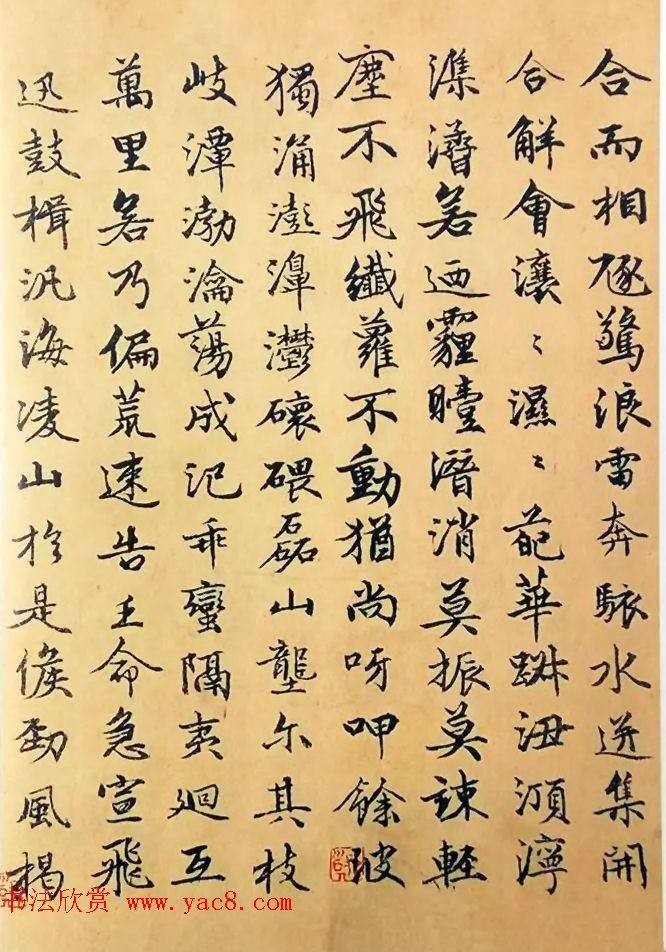 合而相豗驚浪雷奔駭水迸集開
合解會瀼〻濕〻葩華踧沑澒濘
潗㵫若迺霾曀潛消莫振莫竦輕
塵不飛纖蘿不動猶尚呀呷餘波
獨涌澎濞灪䃶碨磊山壟尓其枝
岐潭渤瀹蕩成汜乖蠻隔夷廻互
萬里若乃偏荒速告王命急宣飛
迅鼓楫汎海凌山於是候勁風揭
书法欣赏 www.yac8.com